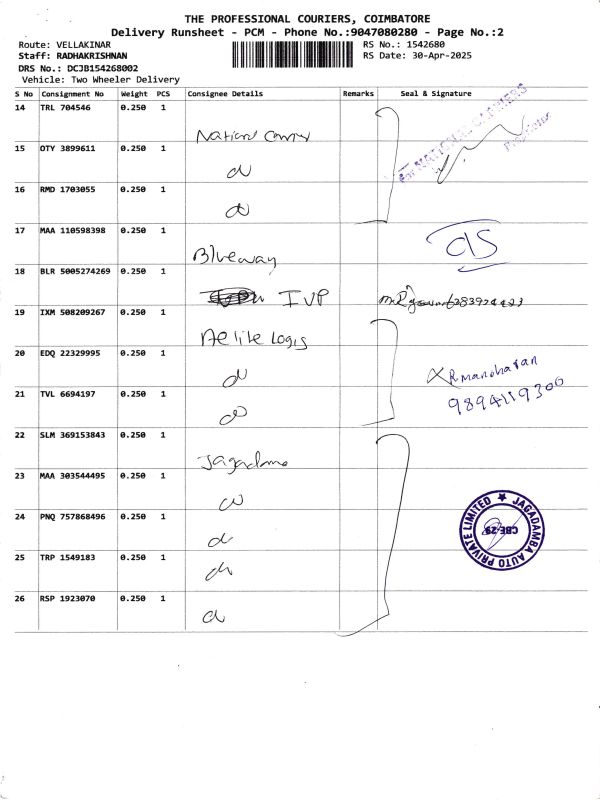 THE PROFESSIONAL COURIERS, COIMBATORE
Delivery Runsheet - PCM - Phone No.:9047080280 - Page No.:2
Route: VELLAKINAR
RS No.: 1542680
Staff: RADHAKRISHNAN
RS Date: 30-Apr-2025
DRS No.: DCJB154268002
Vehicle: Two Wheeler Delivery
S No Consignment No Weight PCS Consignee Details Remarks Seal & Signature
14 TRL 704546 0.250 1
National
for NATIONAL CARRIERS
Proprietor
15 OTY 3899611 0.250 1
16 RMD 1703055 0.250 1
17 MAA 110598398 0.250 1
Blueway
18 BLR 5005274269 0.250 1
IVP
19 IXM 508209267 0.250 1
Aelite Logis
20 EDQ 22329995 0.250 1
R manoharan
21 TVL 6694197 0.250 1
9894119300
22 SLM 369153843 0.250 1
Jagadama
23 MAA 303544495 0.250 1
24 PNQ 757868496 0.250 1
JAGADAMBA AUTO PRIVATE LIMITED
CBE-29
25 TRP 1549183 0.250 1
26 RSP 1923070 0.250 1